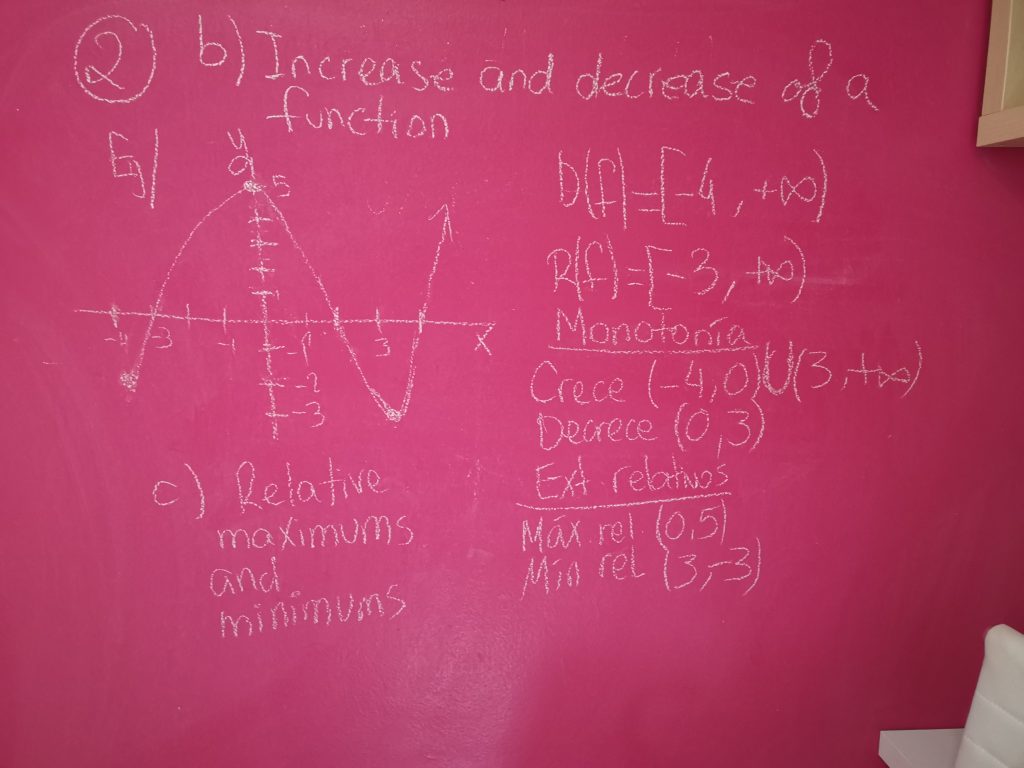 ② b) Increase and decrease of a
function
Ej
y
5
-4 -3 -1 -1 3 x
-2
-3
D(f)=[-4, +∞)
R(f)=[-3, +∞)
Monotonía
Crece (-4,0)U(3,+∞)
Decrece (0,3)
Ext relativos
Máx. rel (0,5)
Mín rel (3,-3)
c) Relative
maximums
and
minimums